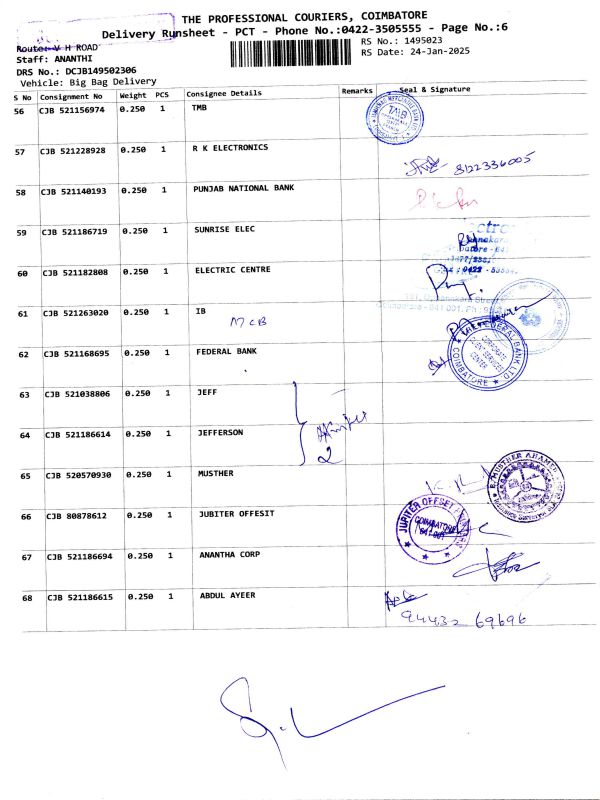 THE PROFESSIONAL COURIERS, COIMBATORE
Delivery Runsheet - PCT - Phone No.:0422-3505555 - Page No.:6
Route: V H ROAD
RS No.: 1495023
Staff: ANANTHI
RS Date: 24-Jan-2025
DRS No.: DCJB149502306
Vehicle: Big Bag Delivery
S No Consignment No Weight PCS Consignee Details Remarks Seal & Signature
56 CJB 521156974 0.250 1 TMB
TMB
57 CJB 521228928 0.250 1 R K ELECTRONICS
8122336005
58 CJB 521140193 0.250 1 PUNJAB NATIONAL BANK
59 CJB 521186719 0.250 1 SUNRISE ELEC
60 CJB 521182808 0.250 1 ELECTRIC CENTRE
61 CJB 521263020 0.250 1 IB
MCB
62 CJB 521168695 0.250 1 FEDERAL BANK
THE FEDERAL BANK LTD.
CORPORATE
CLIENT SERVICES
CENTER
COIMBATORE
63 CJB 521038806 0.250 1 JEFF
64 CJB 521186614 0.250 1 JEFFERSON
2
65 CJB 520570930 0.250 1 MUSTHER
66 CJB 80878612 0.250 1 JUBITER OFFESIT
JUPITER OFFSET
COIMBATORE
641 001
67 CJB 521186694 0.250 1 ANANTHA CORP
68 CJB 521186615 0.250 1 ABDUL AYEER
94432 69696